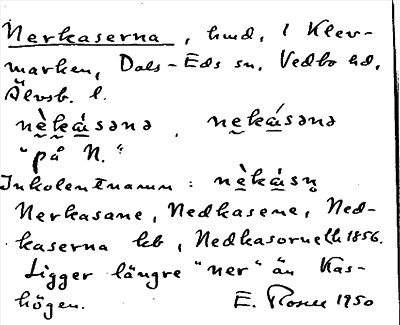 Nerkaserna, hmd, i Klev-
marken, Dals-Eds sn. Vedbo hd,
Älvsb. l.
nè̬kȧ̬sənə, ne̬ká̬sənə
"på N."
Inkolentnamn: nè̬ká̬sn̥
Nerkasane, Nedkasene, Ned-
kaserna kb, Nedkasorne 1856.
Ligger längre "ner" än Kas-
högen. E. Rosell 1950